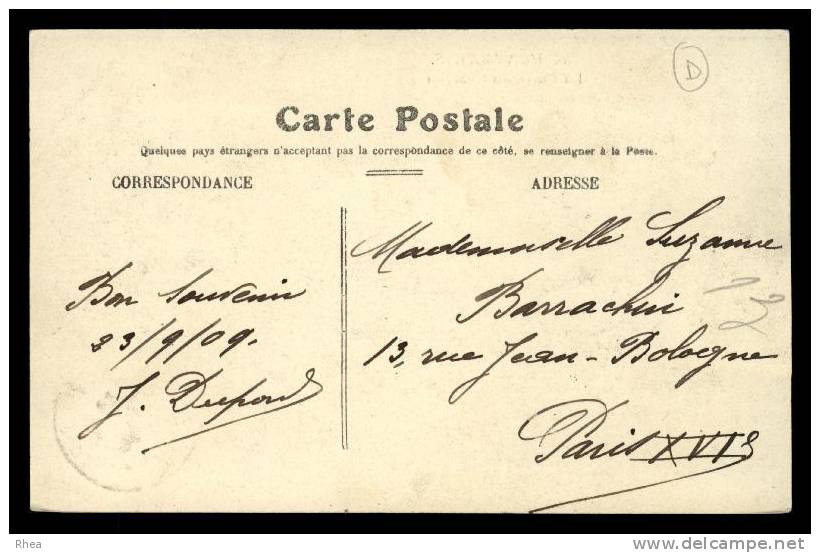 D
Carte Postale
Quelques pays étrangers n'acceptant pas la correspondance de ce côté, se renseigner à la Poste.
CORRESPONDANCE
ADRESSE
Bon Souvenir
23/9/09.
J. Dupond
Mademoiselle Suzanne
Barrachin
13, rue Jean-Bologne
Paris XVIe
Rhea
www.delcampe.net